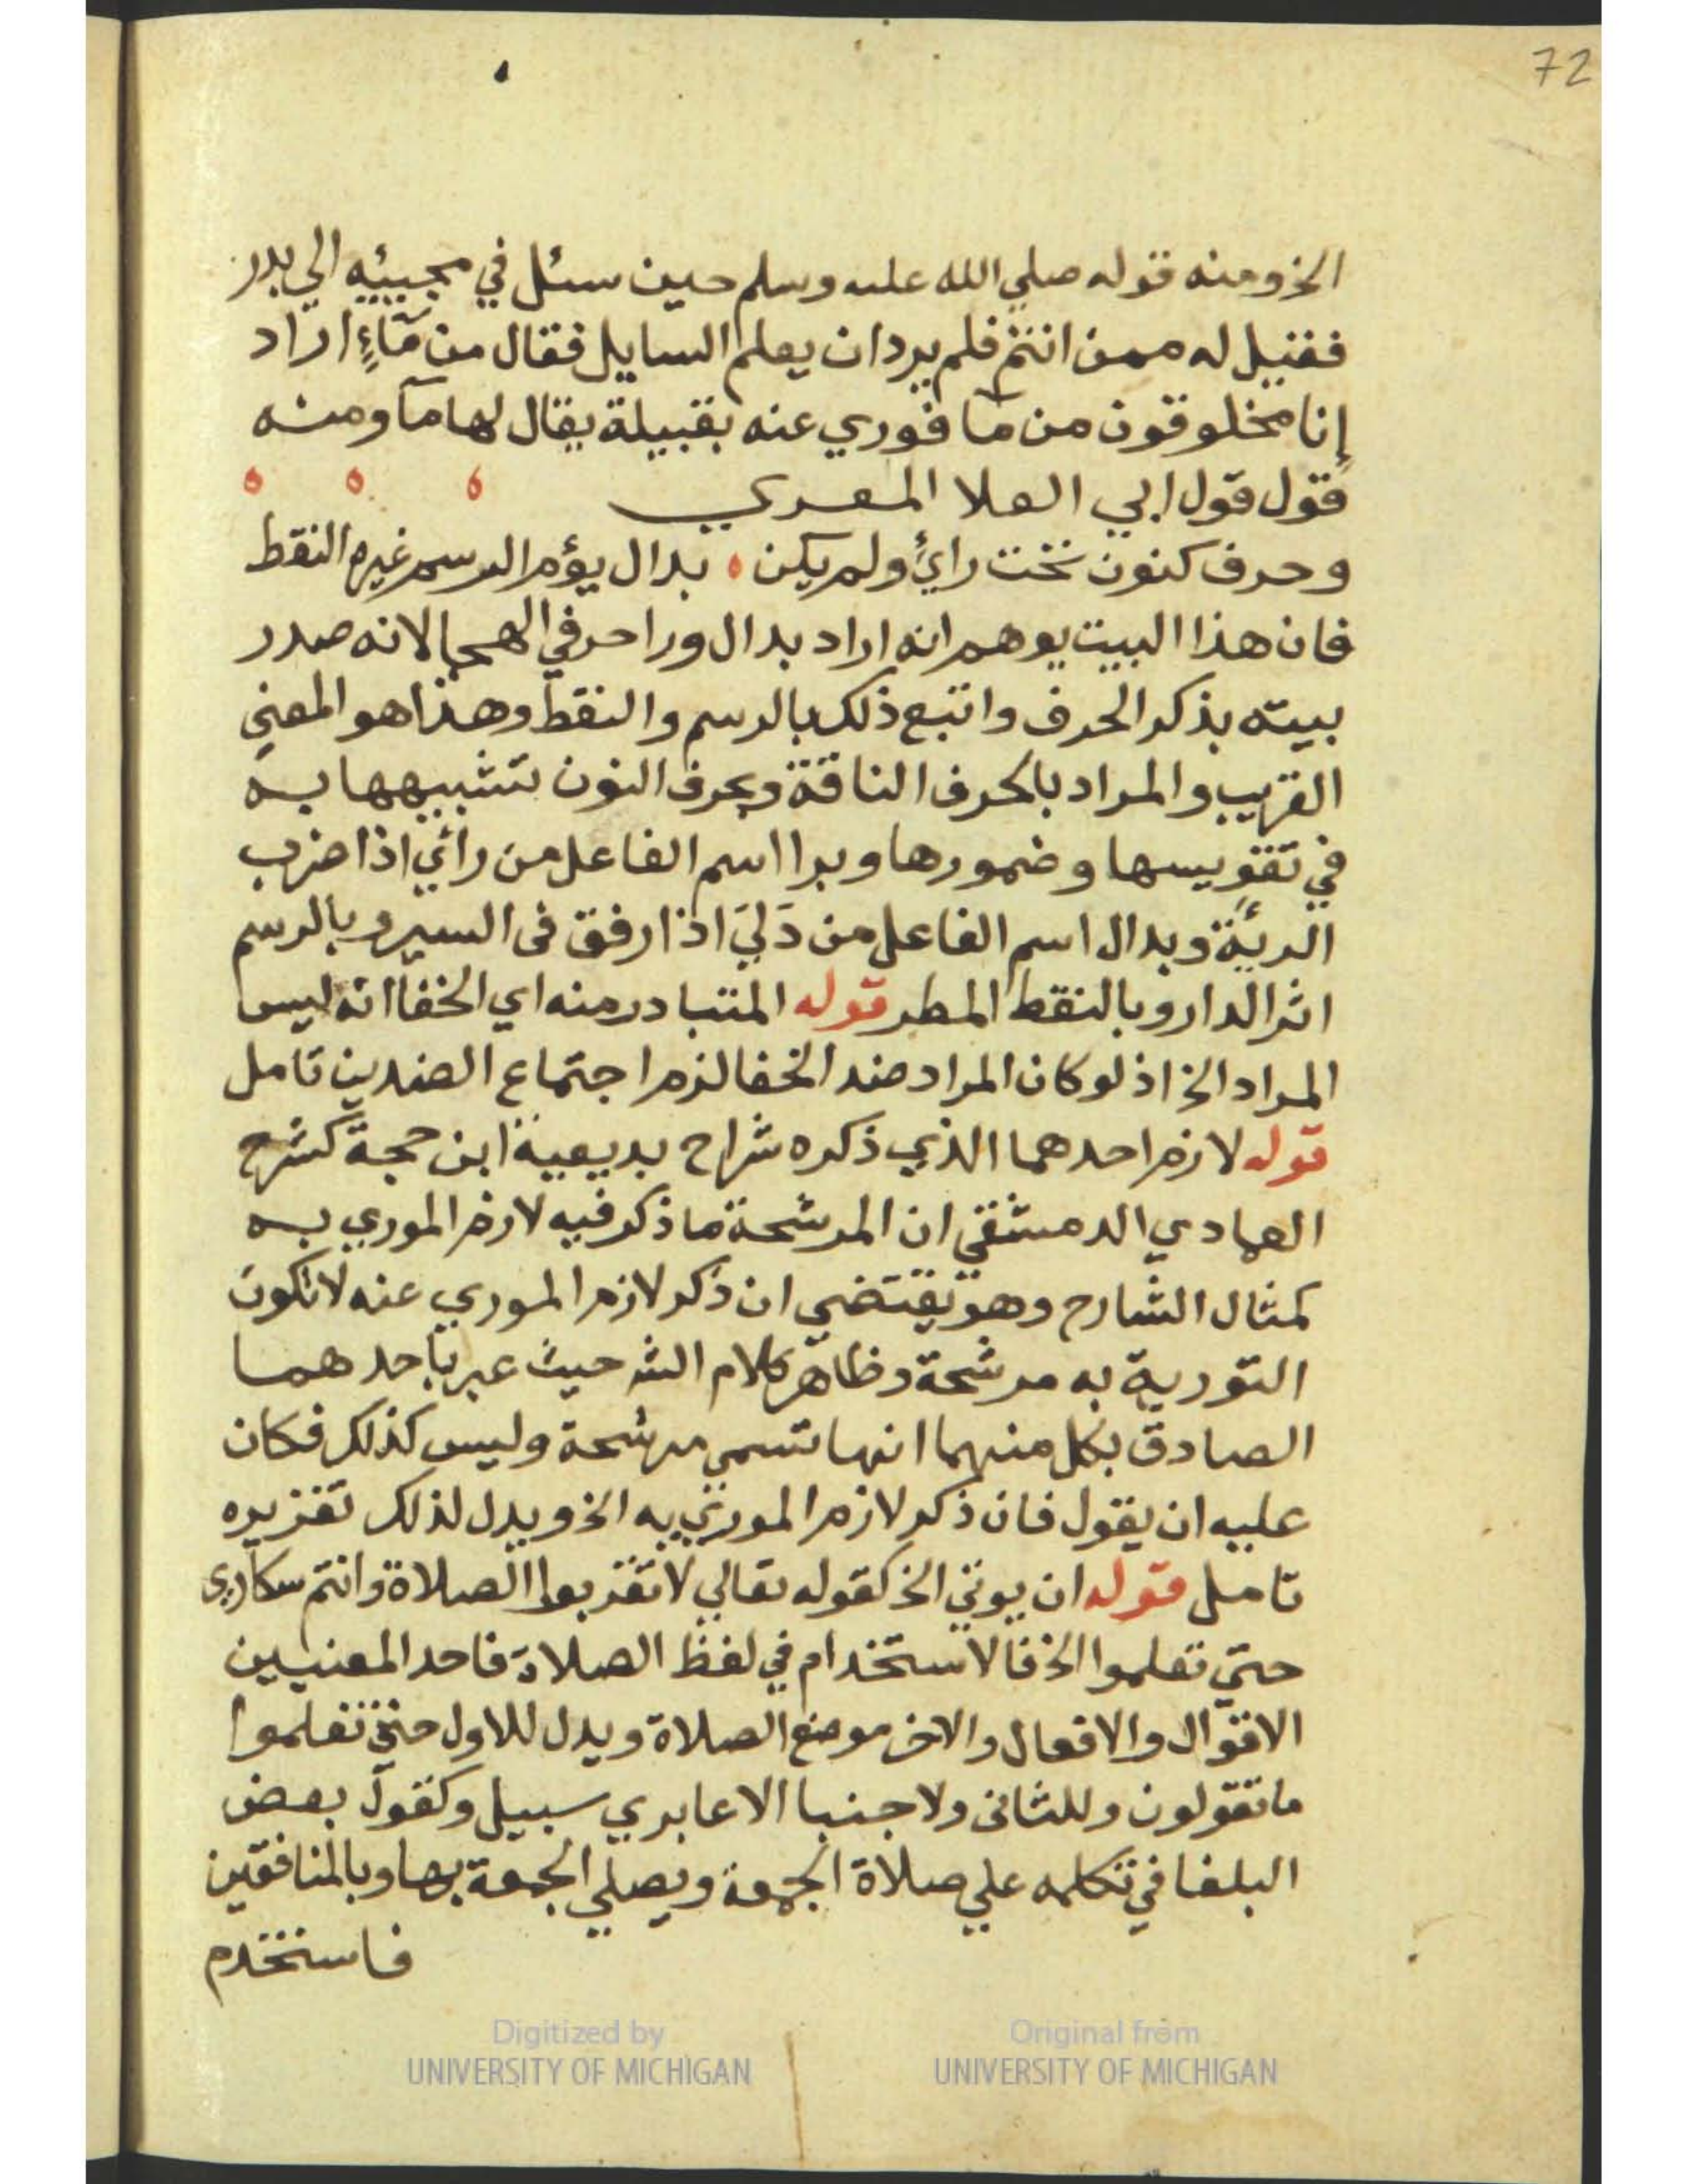 72
الخ ومنه قوله صلي الله عليه وسلم حين سئل في مجيئه الي بدر
فقيل له ممن انتم فلم يرد ان يعلم السايل فقال من مآءٍ اراد
إنا مخلوقون من مآ فوري عنه بقبيلة يقال لها مآ ومنه
قول قول ابي العلا المعري
وحرف كنون تحت رائ ولم يكن ، بدال يؤم الرسم غيره النقط
فان هذا البيت يوهم انه اراد بدال ورا حرفي الهجا لانه صدر
بيته بذكر الحرف واتبع ذلك بالرسم والنقط وهذا هو المعني
القريب والمراد بالحرف الناقة وبحرف النون تشبيهها به
في تقويسها وضمورها وبرا اسم الفاعل من رائي اذا ضرب
الرئة وبدال اسم الفاعل من دَليَ اذا رفق في السير وبالرسم
اثر الدار وبالنقط المطر قوله المتبادر منه اي الخفا انه ليس
المراد الخ اذ لو كان المراد ضد الخفا لزم اجتماع الضدين تامل
قوله لازم احدهما الذي ذكره شراح بديعية ابن حجة كشرح
العمادي الدمشقي ان المرشحة ما ذكر فيه لازم الموري به
كمثال الشارح وهو يقتضي ان ذكر لازم الموري عنه لا تكون
التورية به مرشحة وظاهر كلام الش حيث عبر باحدهما
الصادق بكل منهما انها تسمي مرشحة وليس كذلك فكان
عليه ان يقول فان ذكر لازم الموري به الخ ويدل لذلك تقريره
تامل قوله ان يوتي الخ كقوله تعالي لا تقربوا الصلاة وانتم سكاري
حتي تعلموا الخ فالاستخدام في لفظ الصلاة فاحد المعنيين
الاقوال والافعال والاخر موضع الصلاة ويدل للاول حتي تعلموا
ما تقولون وللثاني ولا جنبا الا عابري سبيل وكقول بعض
البلغا في تكلمه علي صلاة الجمعة ويصلي الجمعة بها وبالمنافقين
فاستخدم
Digitized by
UNIVERSITY OF MICHIGAN
Original from
UNIVERSITY OF MICHIGAN